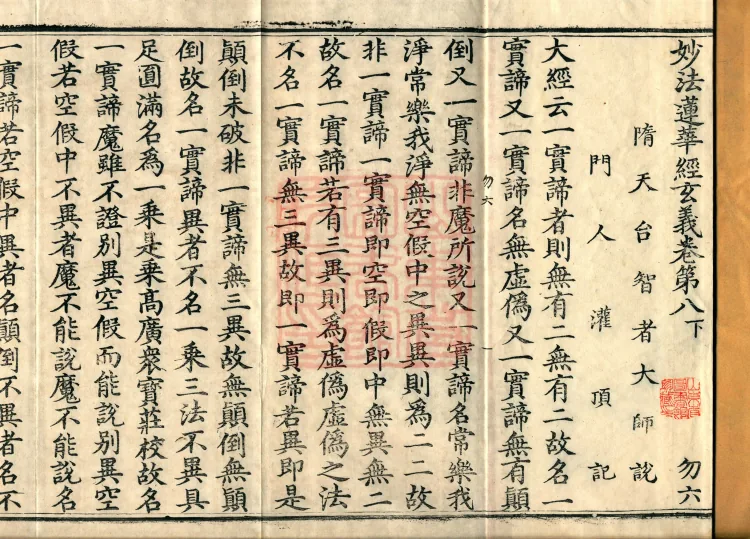 妙法蓮華經玄義卷第八下
勿六
隋天台智者大師說
門人灌頂記
大經云一實諦者則無有二無有二故名一
實諦又一實諦名無虛偽又一實諦無有顛
勿六
倒又一實諦非魔所說又一實諦名常樂我
淨常樂我淨無空假中之異異則為二二故
非一實諦一實諦即空即假即中無異無二
故名一實諦若有三異則為虛偽虛偽之法
不名一實諦無三異故即一實諦若異即是
顛倒未破非一實諦無三異故無顛倒無顛
倒故名一實諦異者不名一乘三法不異具
足圓滿名為一乘是乘高廣眾寶莊校故名
一實諦魔雖不證別異空假而能說別異空
假若空假中不異者魔不能說魔不能說名
一實諦若空假中異者名顛倒不異者名不